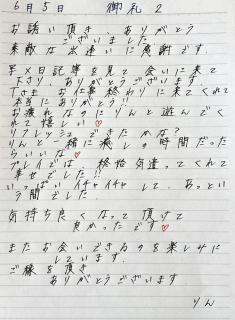 6月5日 御礼 2
お誘い頂き、ありがとう
ございました
素敵な出逢いに感謝です。
写メ日記等を見て会いに来て
下さり、ありがとうございます
Tさま お仕事終わりに来てくれて
本当にありがとう!!
お疲れなのにりんと遊んでく
れて嬉しい♡
リフレッシュできたかな?
りんと一緒に癒しの時間だった
らいいな♡
プレイでは、終始気遣ってくれて
幸せでした!!
いっぱいイチャイチャして、あっとい
う間でした
気持ち良くなって頂けて
良かったです♡
またお会いできるのを楽しみに
しています。
ご縁を頂き
ありがとうございます
りん